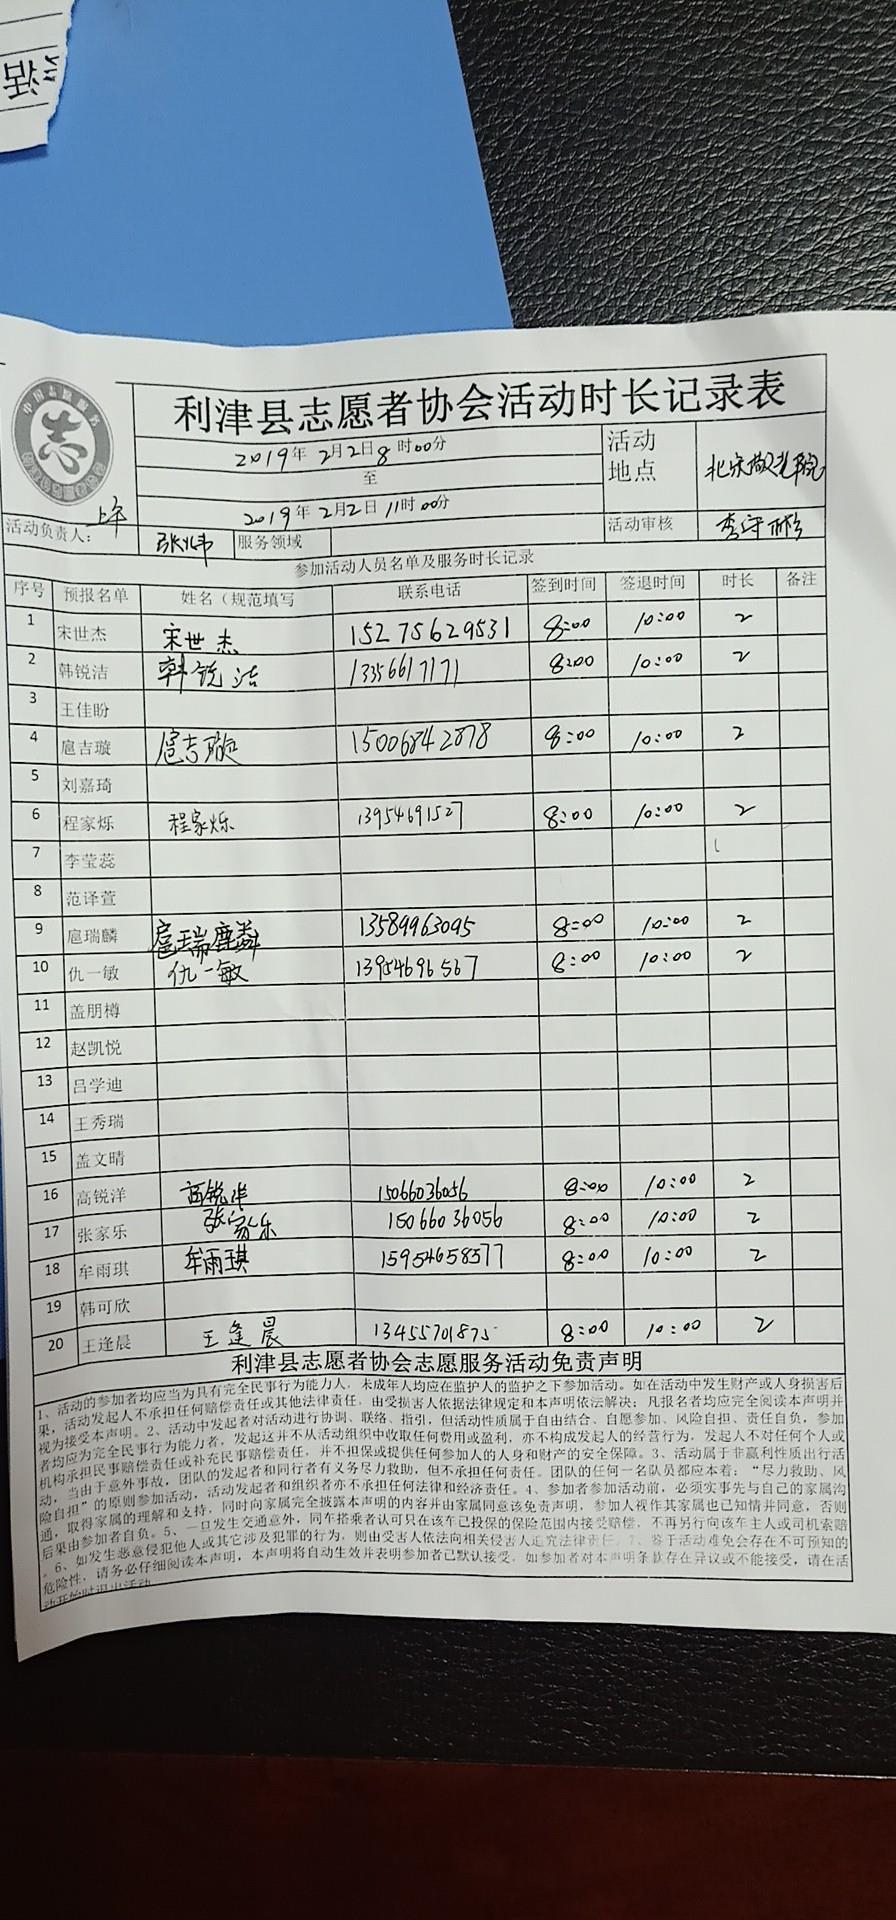 活
利津县志愿者协会活动时长记录表
中国志愿服务
志
2019年 2月2日8时00分
至
2019年 2月2日 11时00分
活动地点
北宋敬老院
活动负责人：
上午
张伟
服务领域
活动审核
李守彬
参加活动人员名单及服务时长记录
序号 预报名单 姓名（规范填写 联系电话 签到时间 签退时间 时长 备注
1 宋世杰 宋世杰 15275629531 8:00 10:00 2
2 韩锐洁 韩锐洁 13356617171 8:00 10:00 2
3 王佳盼
4 扈吉璇 扈吉璇 15006842878 8:00 10:00 2
5 刘嘉琦
6 程家烁 程家烁 13954691527 8:00 10:00 2
7 李莹蕊
8 范译萱
9 扈瑞麟 扈瑞麟 13589963095 8:00 10:00 2
10 仇一敏 仇一敏 13954696567 8:00 10:00 2
11 盖朋樽
12 赵凯悦
13 吕学迪
14 王秀瑞
15 盖文晴
16 高锐洋 高锐洋 15066036056 8:00 10:00 2
17 张家乐 张家乐 15066036056 8:00 10:00 2
18 牟雨琪 牟雨琪 15954658577 8:00 10:00 2
19 韩可欣
20 王逢晨 王逢晨 13455701875 8:00 10:00 2
利津县志愿者协会志愿服务活动免责声明
1、活动的参加者均应当为具有完全民事行为能力人，未成年人均应在监护人的监护之下参加活动。如在活动中发生财产或人身损害后
果，活动发起人不承担任何赔偿责任或其他法律责任，由受损害人依据法律规定和本声明依法解决；凡报名者均应完全阅读本声明并
视为接受本声明。2、活动中发起者对活动进行协调、联络、指引，但活动性质属于自由结合、自愿参加、风险自担、责任自负，参加
者均应为完全民事行为能力者，发起这并不从活动组织中收取任何费用或盈利，亦不构成发起人的经营行为，发起人不对任何个人或
机构承担民事赔偿责任或补充民事赔偿责任，并不担保或提供任何参加人的人身和财产的安全保障。3、活动属于非赢利性质出行活
动，当由于意外事故，团队的发起者和同行者有义务尽力救助，但不承担任何责任。团队的任何一名队员都应本着：“尽力救助、风
险自担”的原则参加活动，活动发起者和组织者亦不承担任何法律和经济责任。4、参加者参加活动前，必须实事先与自己的家属沟
通，取得家属的理解和支持，同时向家属完全披露本声明的内容并由家属同意该免责声明，参加人视作其家属也已知情并同意，否则
后果由参加者自负。5、一旦发生交通意外，同车搭乘者认可只在该车已投保的保险范围内接受赔偿，不再另行向该车主人或司机索赔
。6、如发生恶意侵犯他人或其它涉及犯罪的行为，则由受害人依法向相关侵害人追究法律责任。7、鉴于活动难免会存在不可预知的
危险性，请务必仔细阅读本声明，本声明将自动生效并表明参加者已默认接受。如参加者对本声明条款存在异议或不能接受，请在活
动开始时退出活动